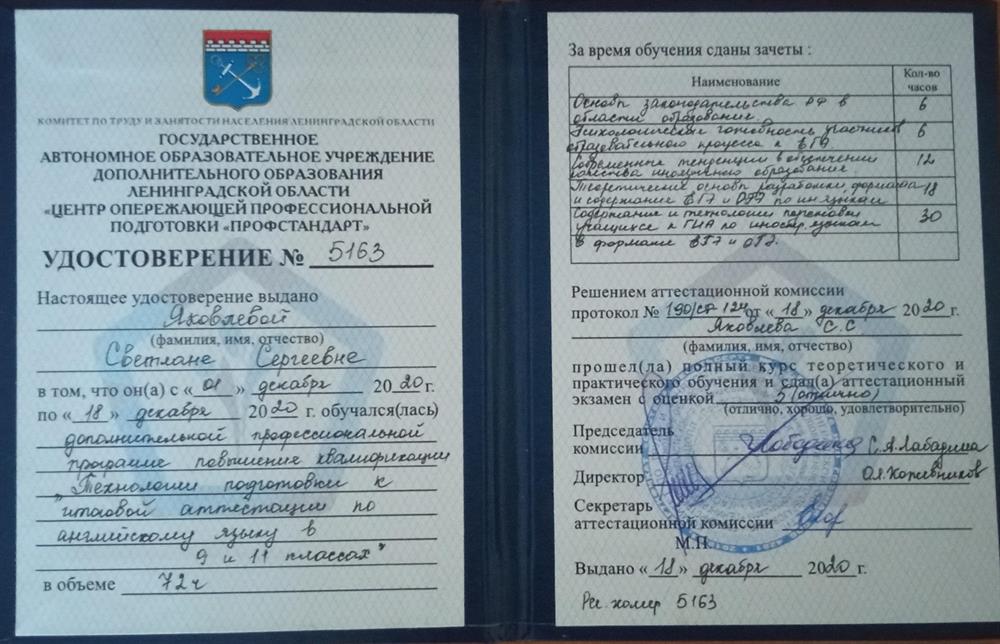 КОМИТЕТ ПО ТРУДУ И ЗАНЯТОСТИ НАСЕЛЕНИЯ ЛЕНИНГРАДСКОЙ ОБЛАСТИ
ГОСУДАРСТВЕННОЕ
АВТОНОМНОЕ ОБРАЗОВАТЕЛЬНОЕ УЧРЕЖДЕНИЕ
ДОПОЛНИТЕЛЬНОГО ОБРАЗОВАНИЯ
ЛЕНИНГРАДСКОЙ ОБЛАСТИ
«ЦЕНТР ОПЕРЕЖАЮЩЕЙ ПРОФЕССИОНАЛЬНОЙ
ПОДГОТОВКИ «ПРОФСТАНДАРТ»
УДОСТОВЕРЕНИЕ № 5163
Настоящее удостоверение выдано
Яковлевой
(фамилия, имя, отчество)
Светлане Сергеевне
в том, что он(а) с «01» декабря 2020г.
по «18» декабря 2020 г. обучался(лась)
дополнительной профессиональной
программе повышения квалификации
"Технологии подготовки к
итоговой аттестации по
английскому языку в
9 и 11 классах"
в объеме 72 ч
За время обучения сданы зачеты :
Наименование Кол-во часов
Основы законодательства РФ в 6
области образования.
Психологическая готовность участников 6
образовательного процесса к ЕГЭ
Современные тенденции в обеспечении 12
качества иноязычного образования
Теоретические основы разработки, формата 18
и содержание ЕГЭ и ОГЭ по ин.языкам
Содержание и технологии подготовки 30
учащихся к ГИА по иностр. языкам
в формате ЕГЭ и ОГЭ.
Решением аттестационной комиссии
протокол № 190/ от «18» декабря 2020г.
Яковлева С.С
(фамилия, имя, отчество)
прошел(ла) полный курс теоретического и
практического обучения и сдал(а) аттестационный
экзамен с оценкой 5 (отлично)
(отлично, хорошо, удовлетворительно)
Председатель
комиссии С.А. Лабадина
Директор О.Л. Кожевников
Секретарь
аттестационной комиссии
М.П.
Выдано «18» декабря 2020г.
Рег. номер 5163